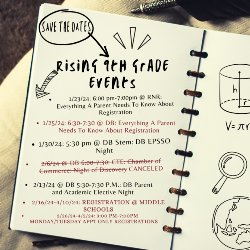 SAVE THE DATES
RISING 9TH GRADE
EVENTS
• 1/23/24: 6:00 pm-7:00pm @ RNR:
Everything A Parent Needs To Know About
Registration
• 1/25/24: 6:30-7:30 @ DB: Everything A Parent
Needs To Know About Registration
• 1/30/24: 5:30 pm @ DB Stem: DB EPSSO
Night
• 2/6/24 @ DB 6:30-7:30: CTE, Chamber of
Commerce: Night of Discovery CANCELED
• 2/23/24 @ DB 5:30-7:30 P.M.: DB Parent
and Academic Elective Night
REGISTRATION @ MIDDLE
SCHOOLS
MONDAY/TUESDAY APPT ONLY REGISTRATIONS
V = π